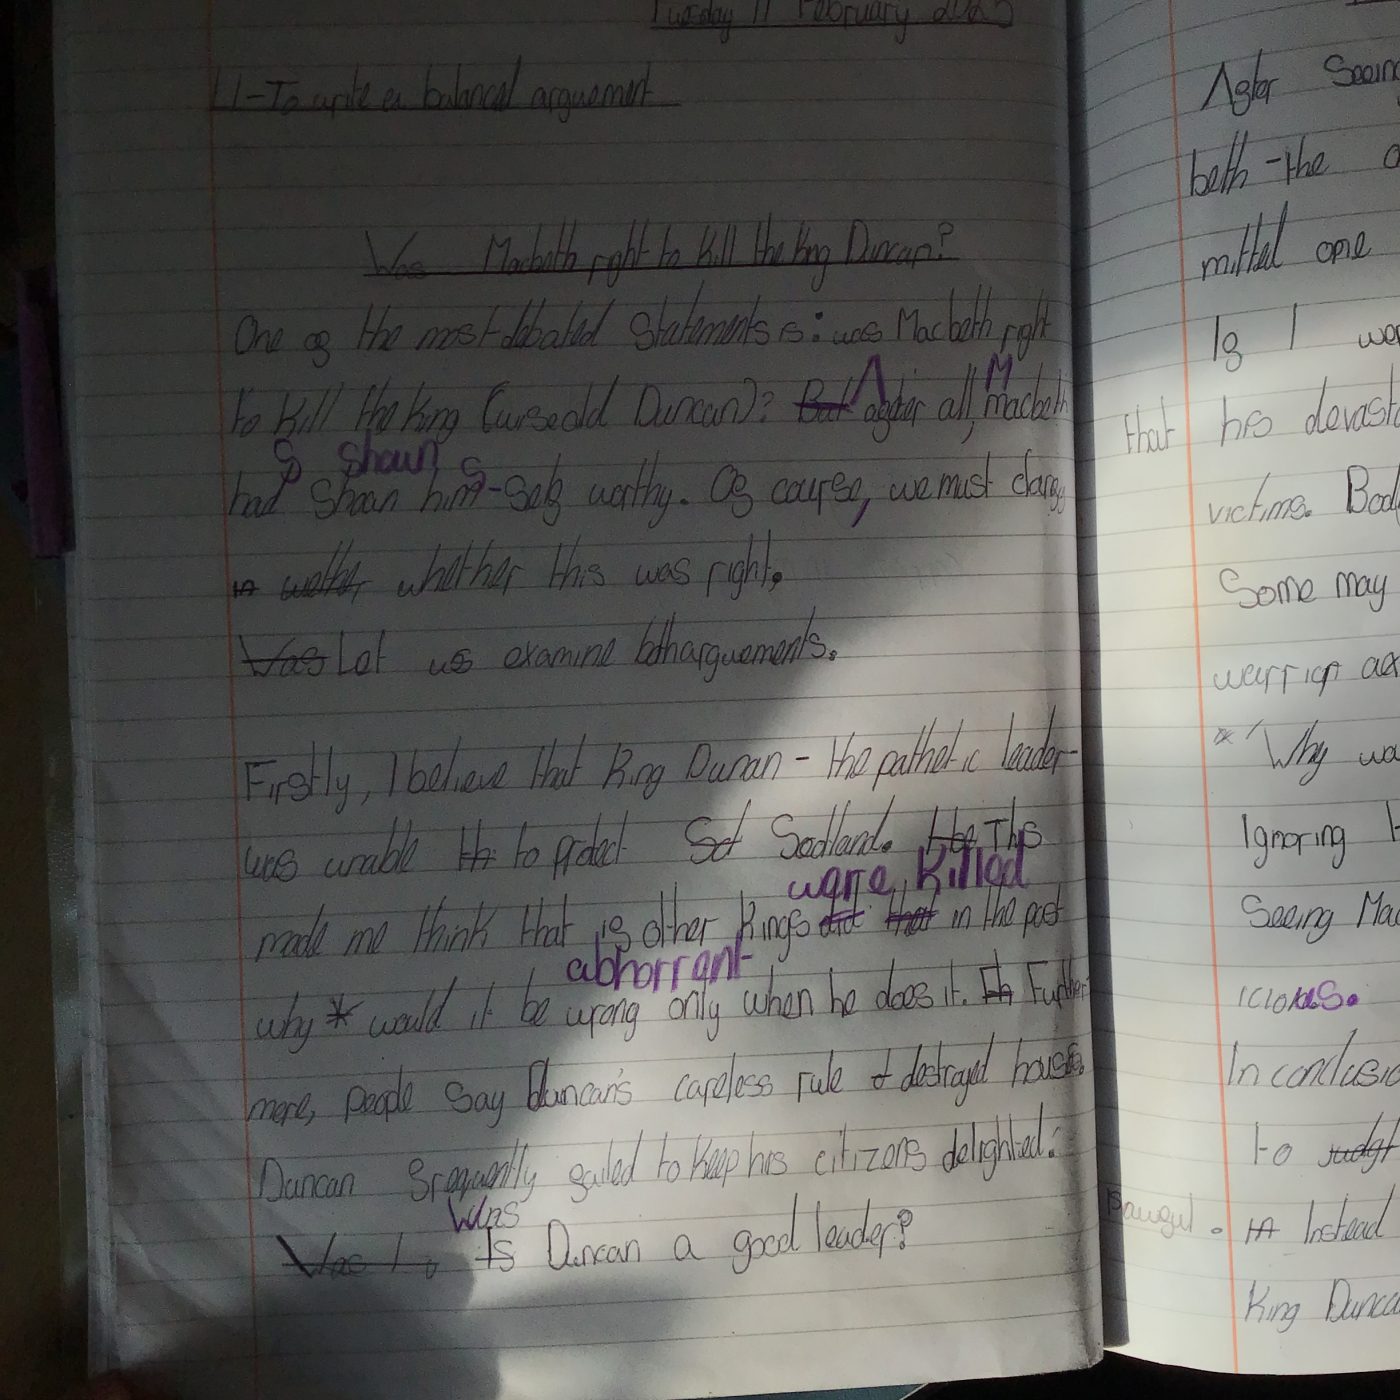 Tuesday 11 February 2025
LI-To write a balanced arguement
Was Macbeth right to kill the king Duncan?
One of the most debated statements is: was Macbeth right
to kill the king (curse old Duncan)? But After all, Macbeth
had shown him-self worthy. Of course, we must clarify
whether this was right.
Was Let us examine both arguements.
Firstly, I believe that King Duncan - the pathetic leader-
was unable to protect Scotland. This
were killed
made me think that if other kings did that in the past
abhorrant
why * would it be wrong only when he does it. Further
more, people say Duncan's careless rule destroyed houses.
Duncan frequently failed to keep his citizens delighted.
Was
Is Duncan a good leader?
After Seeing
beth - the
mitted one
If I
that his
victims.
Some may
warrior
* Why
Ignoring
Seeing
icious.
In
to
Instead
King